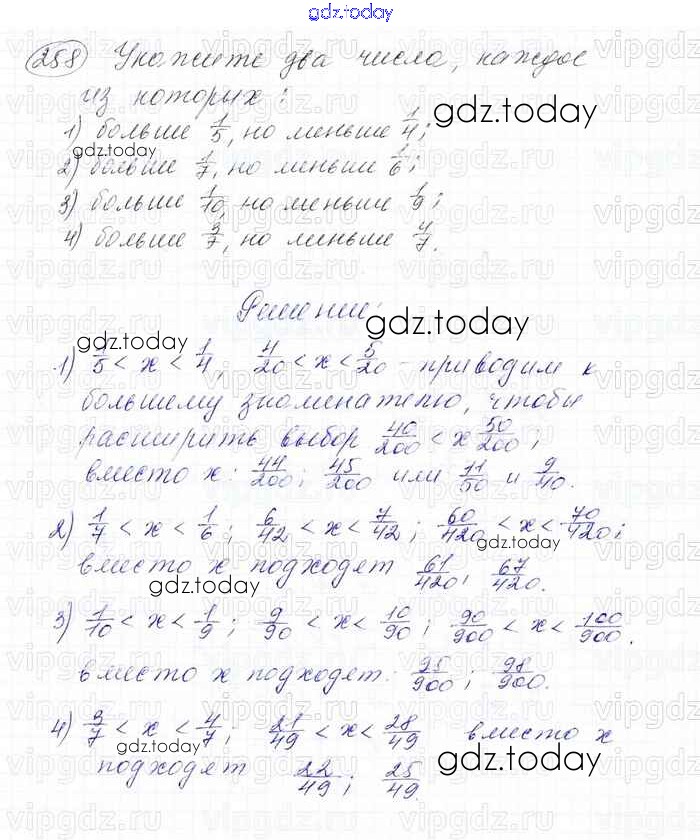 gdz.today
258 Укажите два числа, каждое
из которых:
1) больше 1/5, но меньше 1/4;
2) больше 1/7, но меньше 1/6;
3) больше 1/10, но меньше 1/9;
4) больше 3/7, но меньше 4/7.
Решение:
1) 1/5 < x < 1/4, 4/20 < x < 5/20 - приводим к
большему знаменателю, чтобы
расширить выбор 40/200 < x 50/200;
вместо x: 44/200; 45/200 или 11/50 и 9/40.
2) 1/7 < x < 1/6; 6/42 < x < 7/42; 60/420 < x < 70/420;
вместо x подходят 61/420; 67/420.
3) 1/10 < x < 1/9; 9/90 < x < 10/90; 90/900 < x < 100/900.
вместо x подходят: 98/900.
4) 3/7 < x < 4/7; 21/49 < x < 28/49 вместо x
подходят 22/49; 25/49.